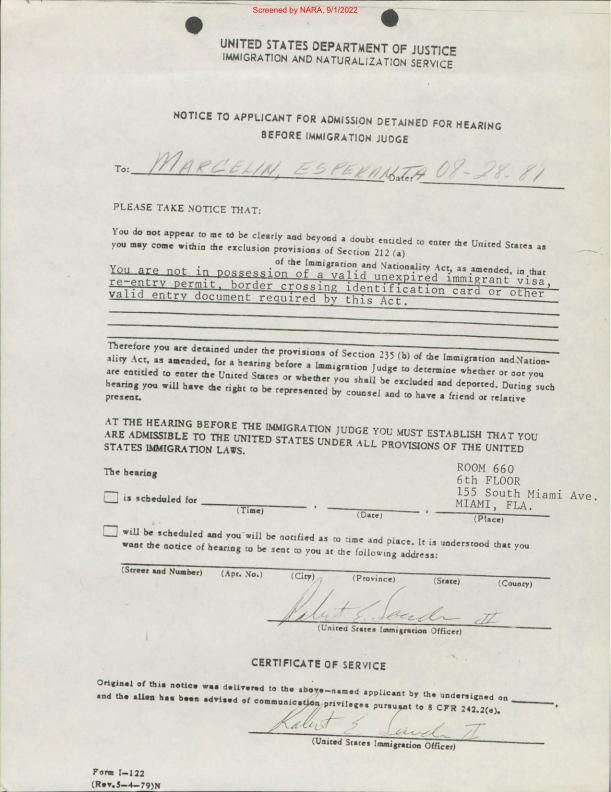 Screened by NARA, 9/1/2022
UNITED STATES DEPARTMENT OF JUSTICE
IMMIGRATION AND NATURALIZATION SERVICE
NOTICE TO APPLICANT FOR ADMISSION DETAINED FOR HEARING
BEFORE IMMIGRATION JUDGE
To: MARCELIN, ESPERANTA Date: 08-28-81
PLEASE TAKE NOTICE THAT:
You do not appear to me to be clearly and beyond a doubt entitled to enter the United States as
you may come within the exclusion provisions of Section 212 (a)
of the Immigration and Nationality Act, as amended, in that
You are not in possession of a valid unexpired immigrant visa,
re-entry permit, border crossing identification card or other
valid entry document required by this Act.
Therefore you are detained under the provisions of Section 235 (b) of the Immigration and Nation-
ality Act, as amended, for a hearing before a Immigration Judge to determine whether or not you
are entitled to enter the United States or whether you shall be excluded and deported. During such
hearing you will have the right to be represented by counsel and to have a friend or relative
present.
AT THE HEARING BEFORE THE IMMIGRATION JUDGE YOU MUST ESTABLISH THAT YOU
ARE ADMISSIBLE TO THE UNITED STATES UNDER ALL PROVISIONS OF THE UNITED
STATES IMMIGRATION LAWS.
The hearing
ROOM 660
6th FLOOR
155 South Miami Ave.
MIAMI, FLA.
is scheduled for
(Time) (Date) (Place)
will be scheduled and you will be notified as to time and place. It is understood that you
want the notice of hearing to be sent to you at the following address:
(Street and Number) (Apt. No.) (City) (Province) (State) (County)
Robert E. II
(United States Immigration Officer)
CERTIFICATE OF SERVICE
Original of this notice was delivered to the above-named applicant by the undersigned on ,
and the alien has been advised of communication privileges pursuant to 8 CFR 242.2(e).
Robert E II
(United States Immigration Officer)
Form I-122
(Rev.5-4-79)N